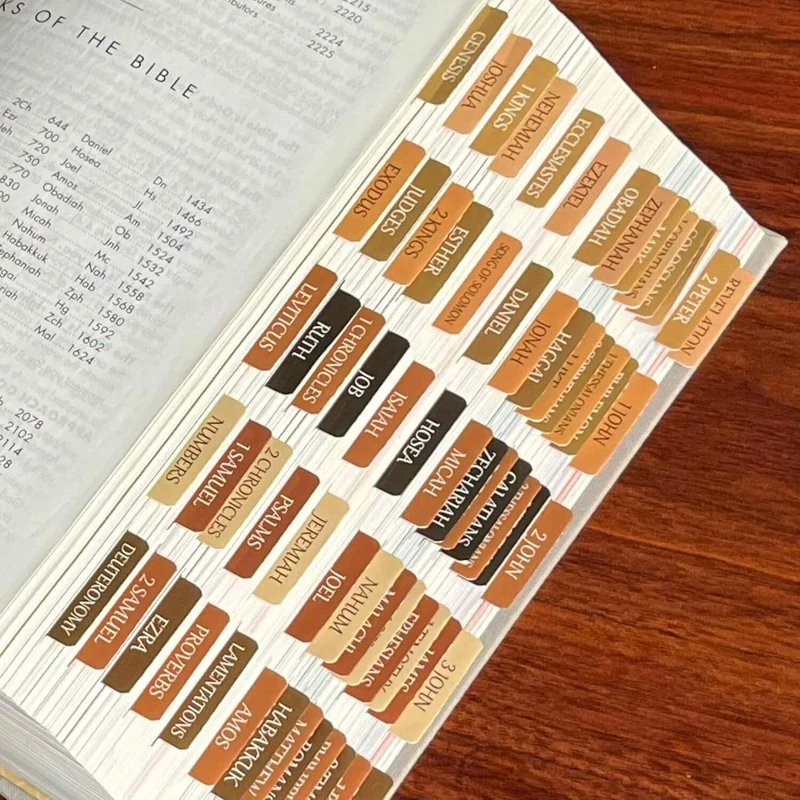 KS OF THE BIBLE
2215
2220
2224
2225
2Ch 644
Ezr 700
720
750
770
830
900
Daniel Dn 1434
Hosea Hs 1466
Joel Jl 1492
Amos Am 1504
Obadiah Ob 1524
Jonah Jnh 1532
Micah Mc 1542
Nahum Nah 1558
Habakkuk Hab 1568
Zph 1580
Hg 1592
Zch 1602
Mal 1624
2078
2102
2114
GENESIS
JOSHUA
1 KINGS
NEHEMIAH
ECCLESIASTES
EZEKIEL
OBADIAH
ZEPHANIAH
COLOSSIANS
2 PETER
REVELATION
EXODUS
JUDGES
2 KINGS
ESTHER
SONG OF SOLOMON
DANIEL
JONAH
HAGGAI
1 JOHN
LEVITICUS
RUTH
1 CHRONICLES
JOB
ISAIAH
HOSEA
MICAH
ZECHARIAH
GALATIANS
2 JOHN
NUMBERS
1 SAMUEL
2 CHRONICLES
PSALMS
JEREMIAH
JOEL
NAHUM
MALACHI
EPHESIANS
JAMES
3 JOHN
DEUTERONOMY
2 SAMUEL
EZRA
PROVERBS
LAMENTATIONS
AMOS
HABAKKUK
MATTHEW